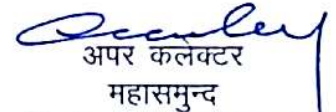 अपर कलेक्टर
महासमुन्द